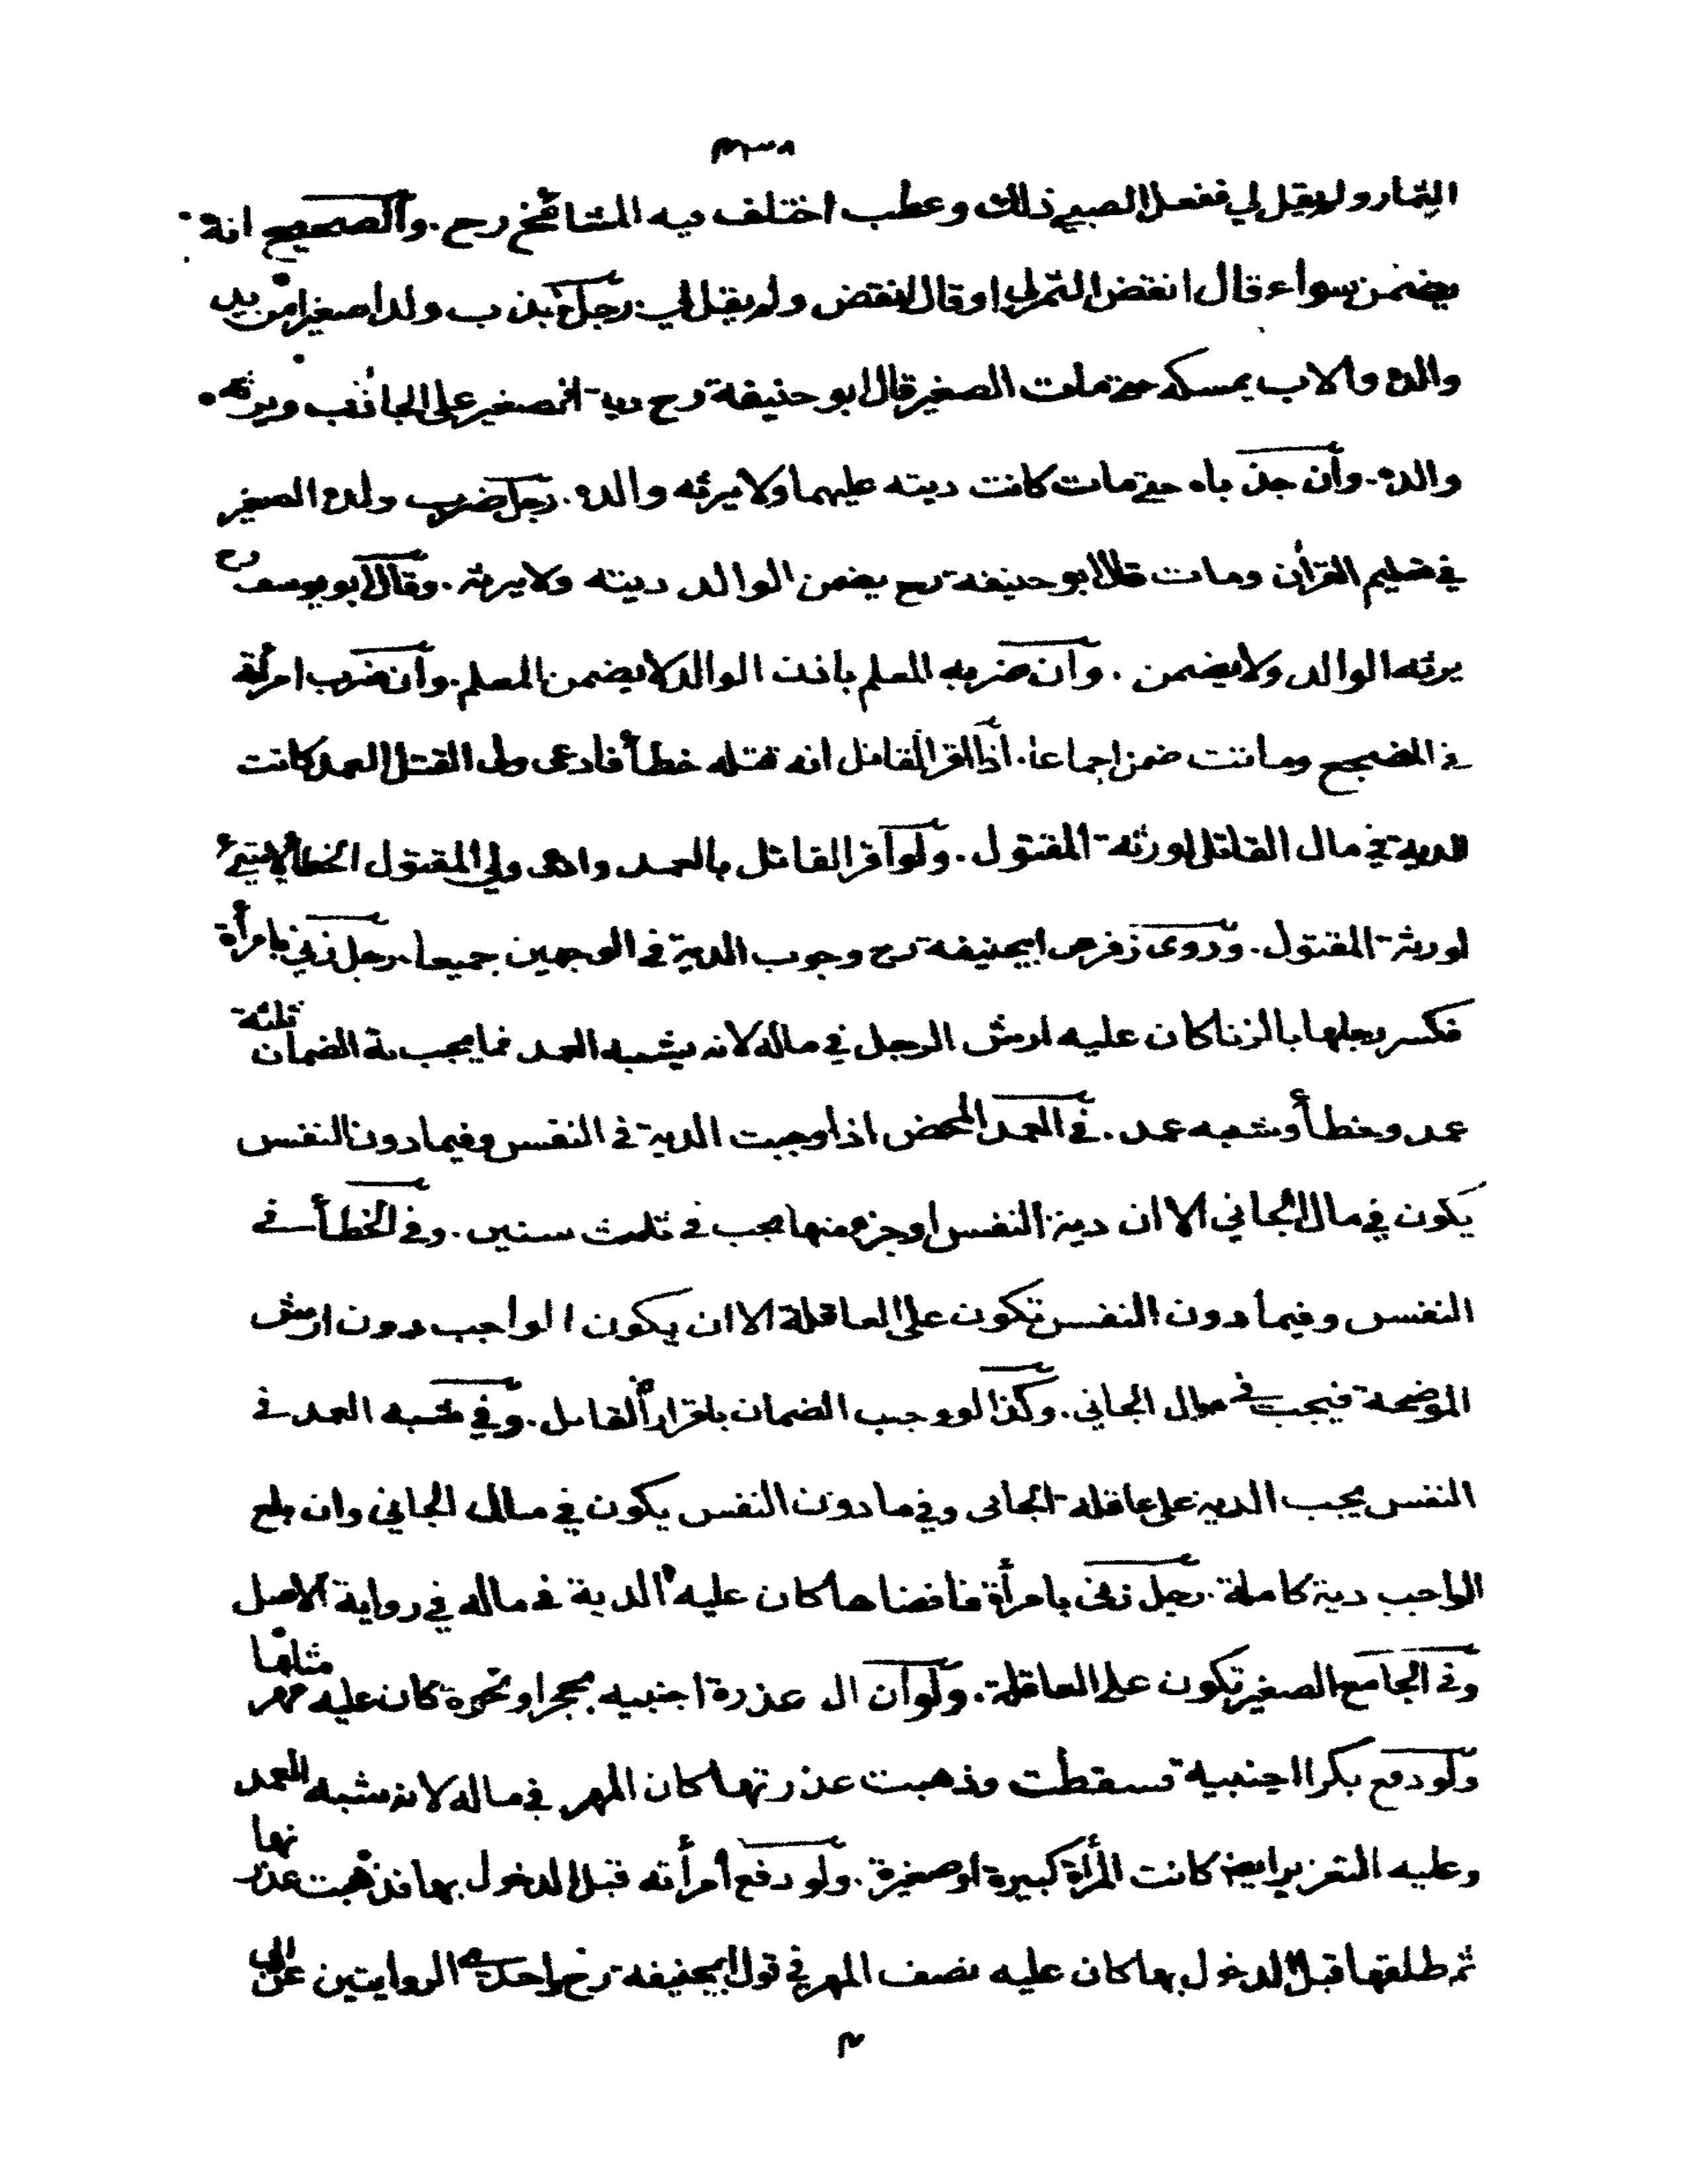 الثمار ولم يقل لي ففعل الصبي ذلك وعطب اختلف فيه المشائخ رح . والصحيح انه
يضمن سواء قال انقض الثمر لي او قال انقض ولم يقل لي . رجل جذب ولدا صغيرا من يد
والده والاب يمسكه حتى مات الصغير قال ابو حنيفة رح دية الصغير على الجاذب ويرثه
والده . وان جذباه حتى مات كانت ديته عليهما ولا يرثه والده . رجل ضرب ولده الصغير
في تعليم القرأن ومات قال ابو حنيفة رح يضمن الوالد ديته ولا يرثه . وقال ابو يوسف رح
يرثه الوالد ولا يضمن . وان ضربه المعلم باذن الوالد لا يضمن المعلم . وان ضرب امرأته
في المضجع وماتت ضمن اجماعا . اذا اقر القاتل انه قتله خطأ فادعى ولي القتل العمد كانت
الدية في مال القاتل لورثة المقتول . ولو اقر القاتل بالعمد وادعى ولي المقتول الخطأ لا شيء
لورثة المقتول . وروى زفر عن ابيحنيفة رح وجوب الدية في الوجهين جميعا . رجل زنى بامرأة
فكسر رجلها بالزنا كان عليه ارش الرجل في ماله لانه يشبه العمد فما يجب به الضمان ثلثة
عمد وخطأ وشبه عمد . في العمد المحض اذا وجبت الدية في النفس وفيما دون النفس
يكون في مال الجاني الا ان دية النفس او جزء منها يجب في ثلث سنين . وفي الخطأ في
النفس وفيما دون النفس تكون على العاقلة الا ان يكون الواجب دون ارش
الموضحة فيجب في مال الجاني . وكذا لو وجب الضمان باقرار القاتل . وفي شبه العمد في
النفس يجب الدية على عاقلة الجاني وفي ما دون النفس يكون في مال الجاني وان بلغ
الواجب دية كاملة . رجل زنى بامرأة فافضاها كان عليه الدية في ماله في رواية الاصل
وفي الجامع الصغير تكون على العاقلة . ولو ان ال عذرة اجنبيه بحجر او نحوه كان عليه مهر مثلها
ولو دفع بكرا اجنبية فسقطت وذهبت عذرتها كان المهر في ماله لانه شبه العمد
وعليه التعزير ايضا كانت المرأة كبيرة او صغيرة . ولو دفع امرأته قبل الدخول بها فذهبت عذرتها
ثم طلقها قبل الدخول بها كان عليه نصف المهر في قول ابيحنيفة رح واحدى الروايتين عن ابي